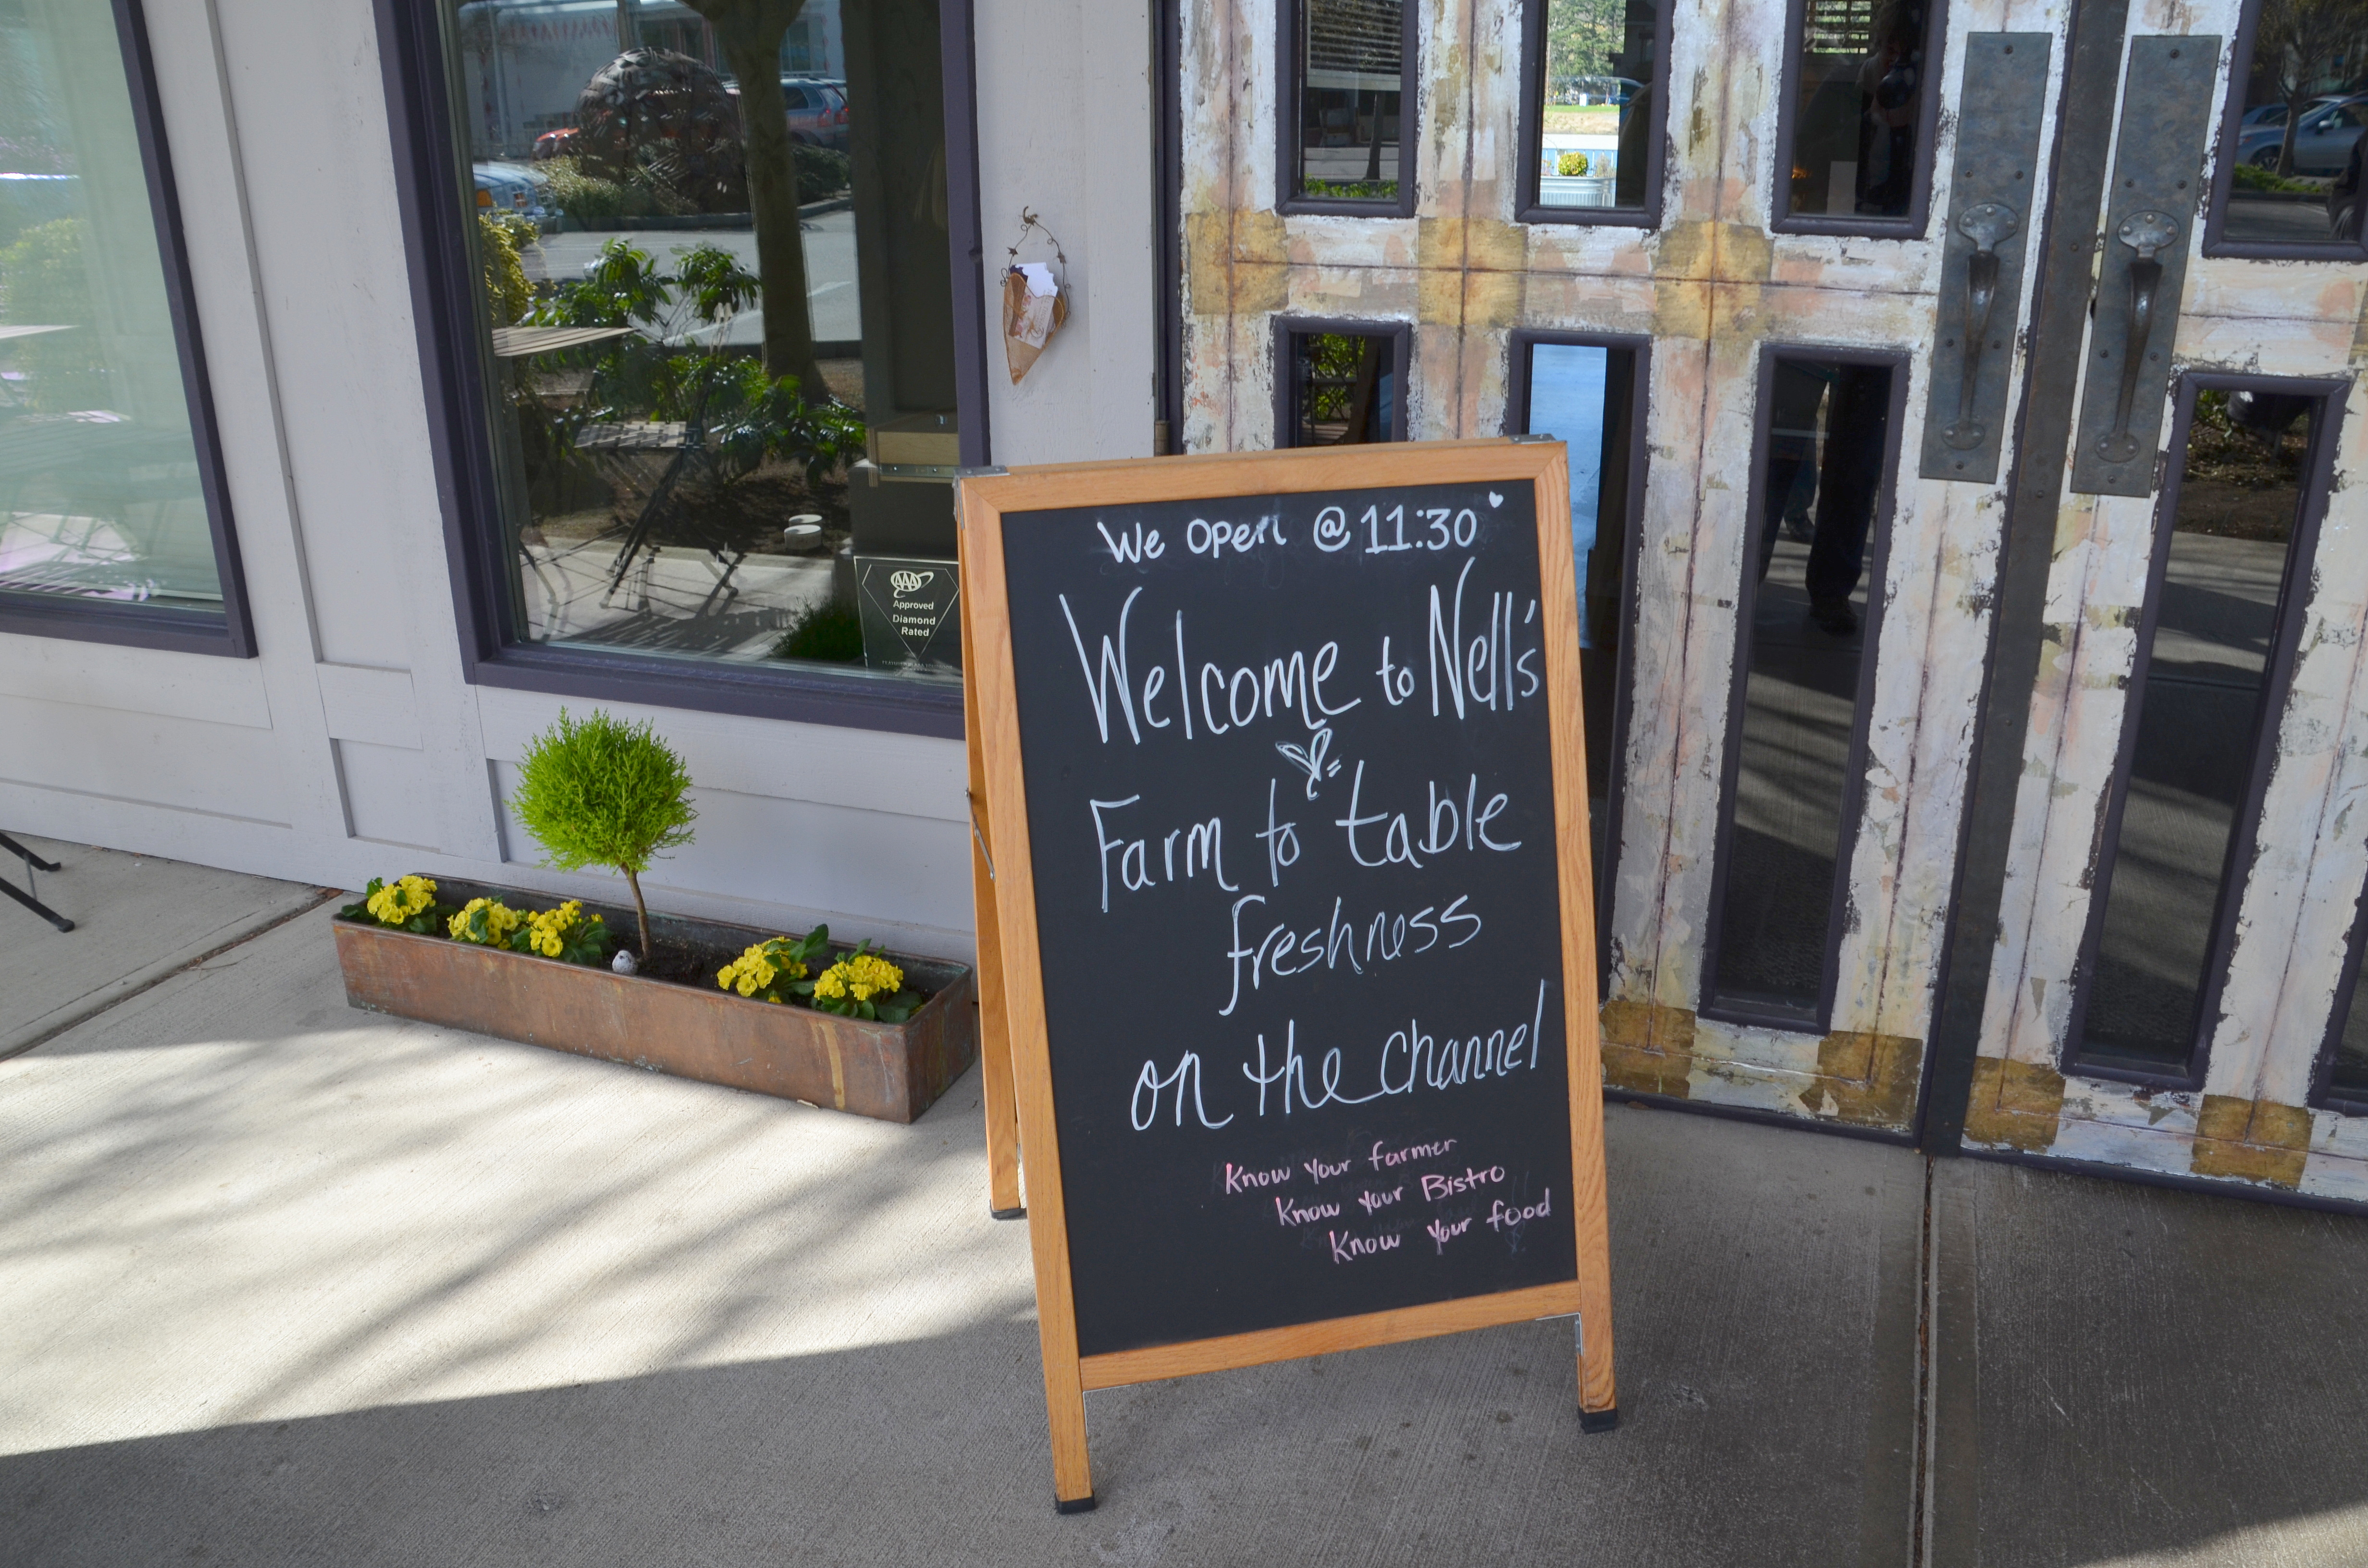 We Open @ 11:30
Welcome to Nell's
Farm to table
freshness
on the channel
Know your farmer
Know your Bistro
Know your food
AAA
Approved
Diamond
Rated